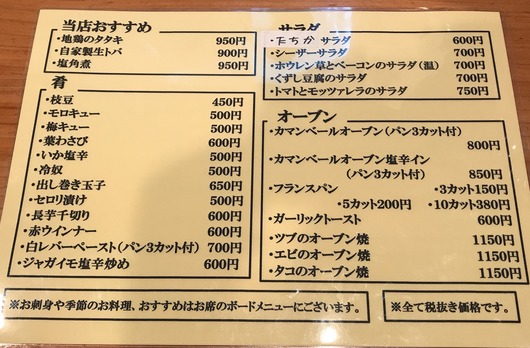 当店おすすめ
・地鶏のタタキ 950円
・自家製生トバ 900円
・塩角煮 950円
肴
・枝豆 450円
・モロキュー 500円
・梅キュー 500円
・葉わさび 600円
・いか塩辛 500円
・冷奴 500円
・出し巻き玉子 650円
・セロリ漬け 500円
・長芋千切り 600円
・赤ウインナー 600円
・白レバーペースト(パン3カット付) 700円
・ジャガイモ塩辛炒め 600円
サラダ
・たちか サラダ 600円
・シーザーサラダ 700円
・ホウレン草とベーコンのサラダ(温) 700円
・くずし豆腐のサラダ 700円
・トマトとモッツァレラのサラダ 750円
オーブン
・カマンベールオーブン(パン3カット付)
800円
・カマンベールオーブン塩辛イン
(パン3カット付) 850円
・フランスパン ・3カット150円
・5カット200円 ・10カット380円
・ガーリックトースト 600円
・ツブのオーブン焼 1150円
・エビのオーブン焼 1150円
・タコのオーブン焼 1150円
※お刺身や季節のお料理、おすすめはお席のボードメニューにございます。
※全て税抜き価格です。